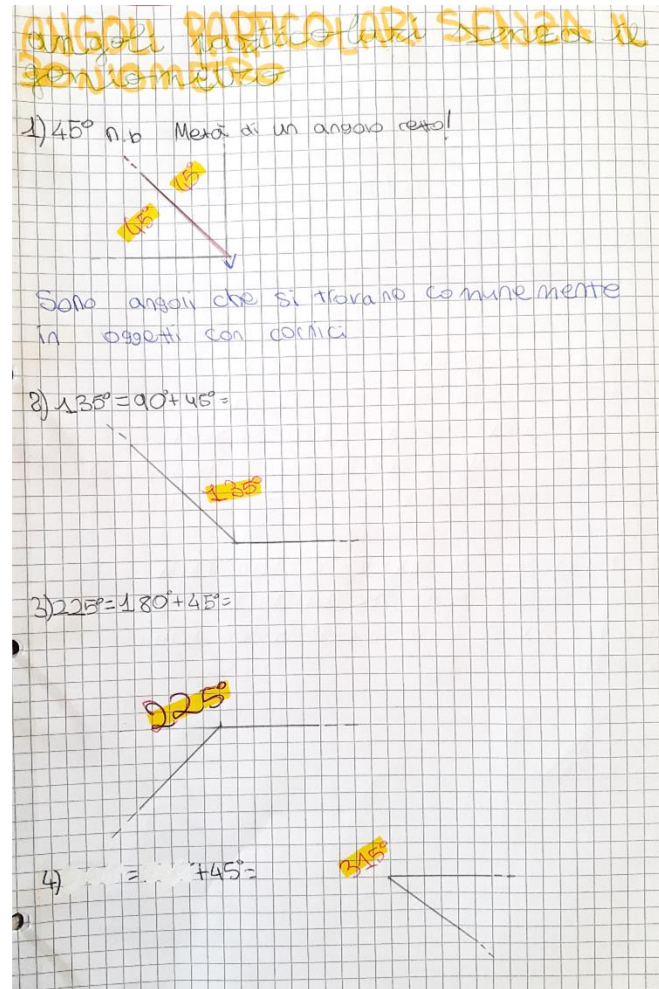 ANGOLI PARTICOLARI SENZA IL
GONIOMETRO
1) 45° n.b Metà di un angolo retto!
45°
45°
Sono angoli che si trovano comunemente
in oggetti con cornici
2) 135°=90°+45°=
135°
3) 225°=180°+45°=
225°
4) = +45°=
315°